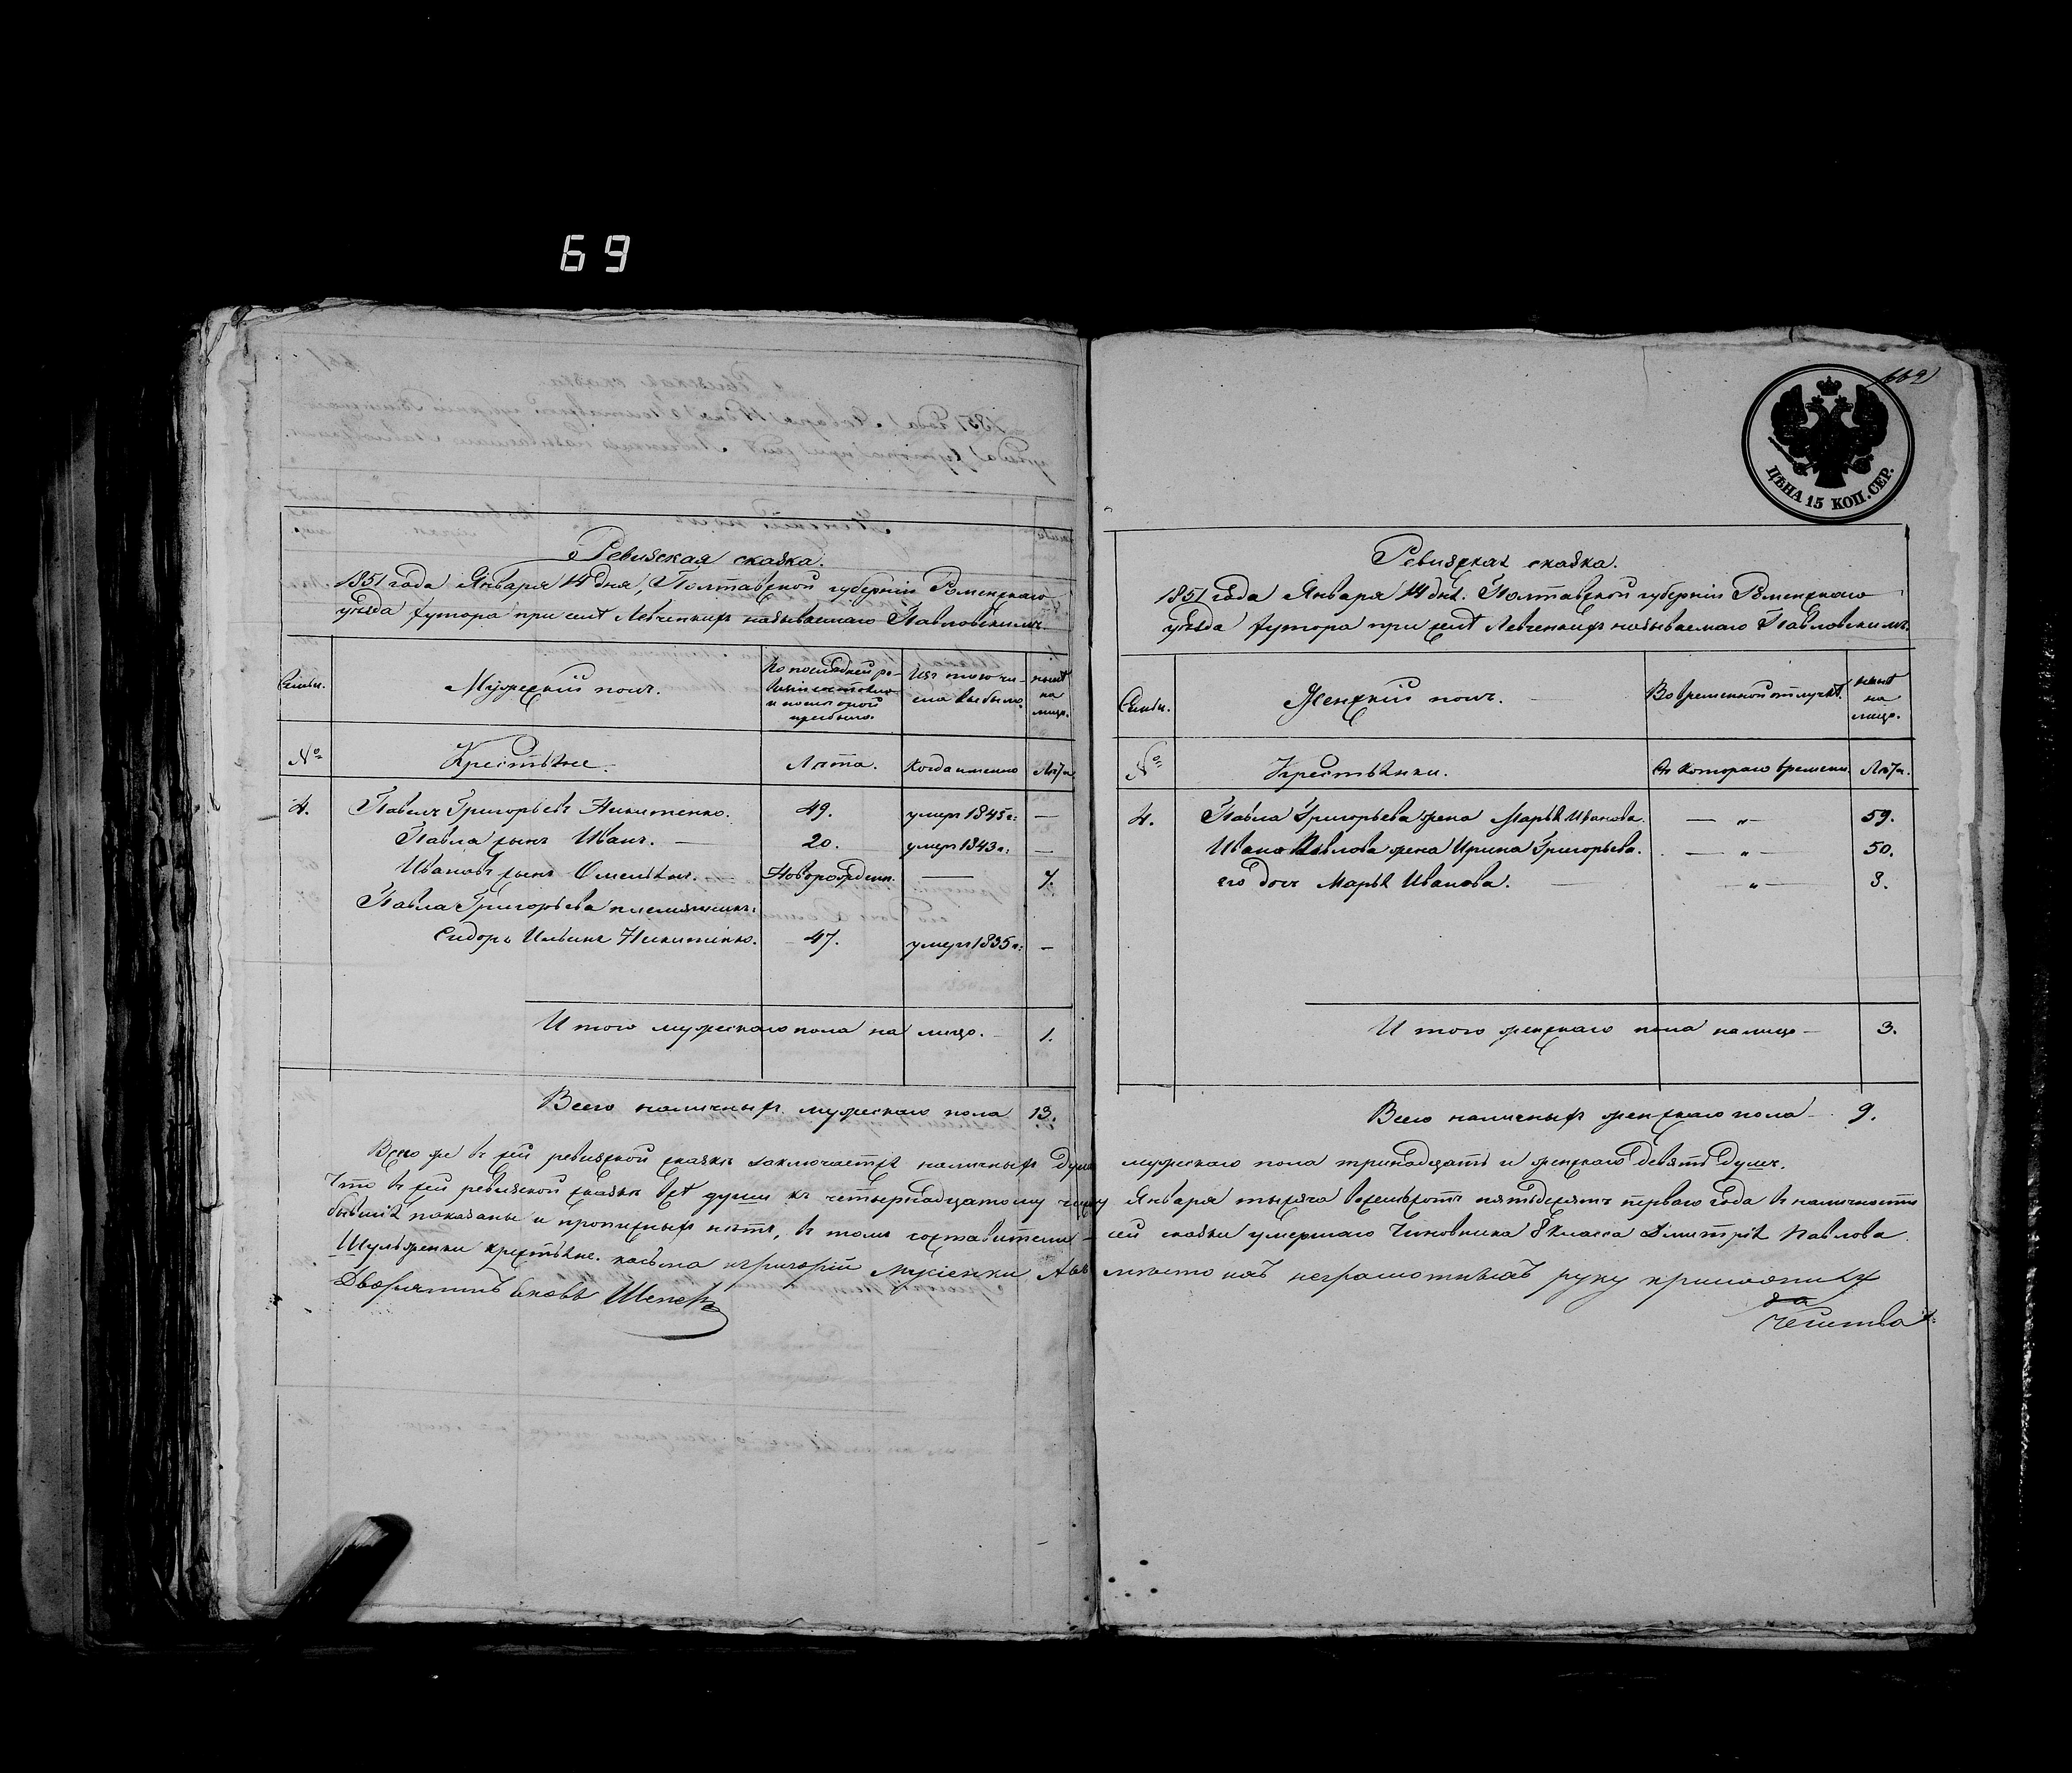 69
662
ЦѢНА 15 КОП. СЕР.
Ревизская сказка.
1851 года Января 14 дня, Полтавской губерніи Роменскаго
уѣзда хутора при селѣ Левченкихъ называемаго Павловскимъ.
Семьи.
Мужескій полъ.
По послѣдней ре-
визіи состояло
и послѣ оной
прибыло.
Изъ того чи-
сла выбыло.
нынѣ
на
лицо.
№
Крестьяне.
Лѣта.
Когда именно
Лѣта
4.
Павелъ Григорьевъ Никитенко. 49. умеръ 1845 г: —
Павла сынъ Иванъ. — 20. умеръ 1843 г: —
Ивановъ сынъ Омельянъ. — Новорожден. — 7.
Павла Григорьева племянникъ:
Сидоръ Ильинъ Никитенко. — 47. умеръ 1835 г: —
И того мужескаго пола на лицо. — 1.
Всего наличныхъ мужескаго пола 13.
Ревизская сказка.
1851 года Января 14 дня. Полтавской губерніи Роменскаго
уѣзда хутора при селѣ Левченкихъ называемаго Павловскимъ.
Семьи.
Женскій полъ.
Во временной отлучкѣ.
нынѣ
на
лицо.
№
Крестьянки.
Съ котораго времени.
Лѣта.
4.
Павла Григорьева жена Марья Иванова. — „ — 59.
Ивана Павлова жена Ирина Григорьева. — „ — 50.
его дочь Марья Иванова. — „ — 3.
И того женскаго пола на лицо — 3.
Всего наличныхъ женскаго пола — 9.
Всего же въ сей ревизской сказкѣ заключается наличныхъ душъ мужескаго пола тринадцать и женскаго девять душъ.
Что въ сей ревизской сказкѣ всѣ души къ четырнадцатому числу Января тысяча восемьсотъ пятьдесятъ перваго года въ наличности
бывшія показаны и прописныхъ нѣтъ, въ томъ составители сей сказки умершаго Чиновника 8 класса Дмитрія Павлова
Шульженки крестьяне. григорій вмѣсто насъ неграмотныхъ руку приложилъ
Дворянинъ